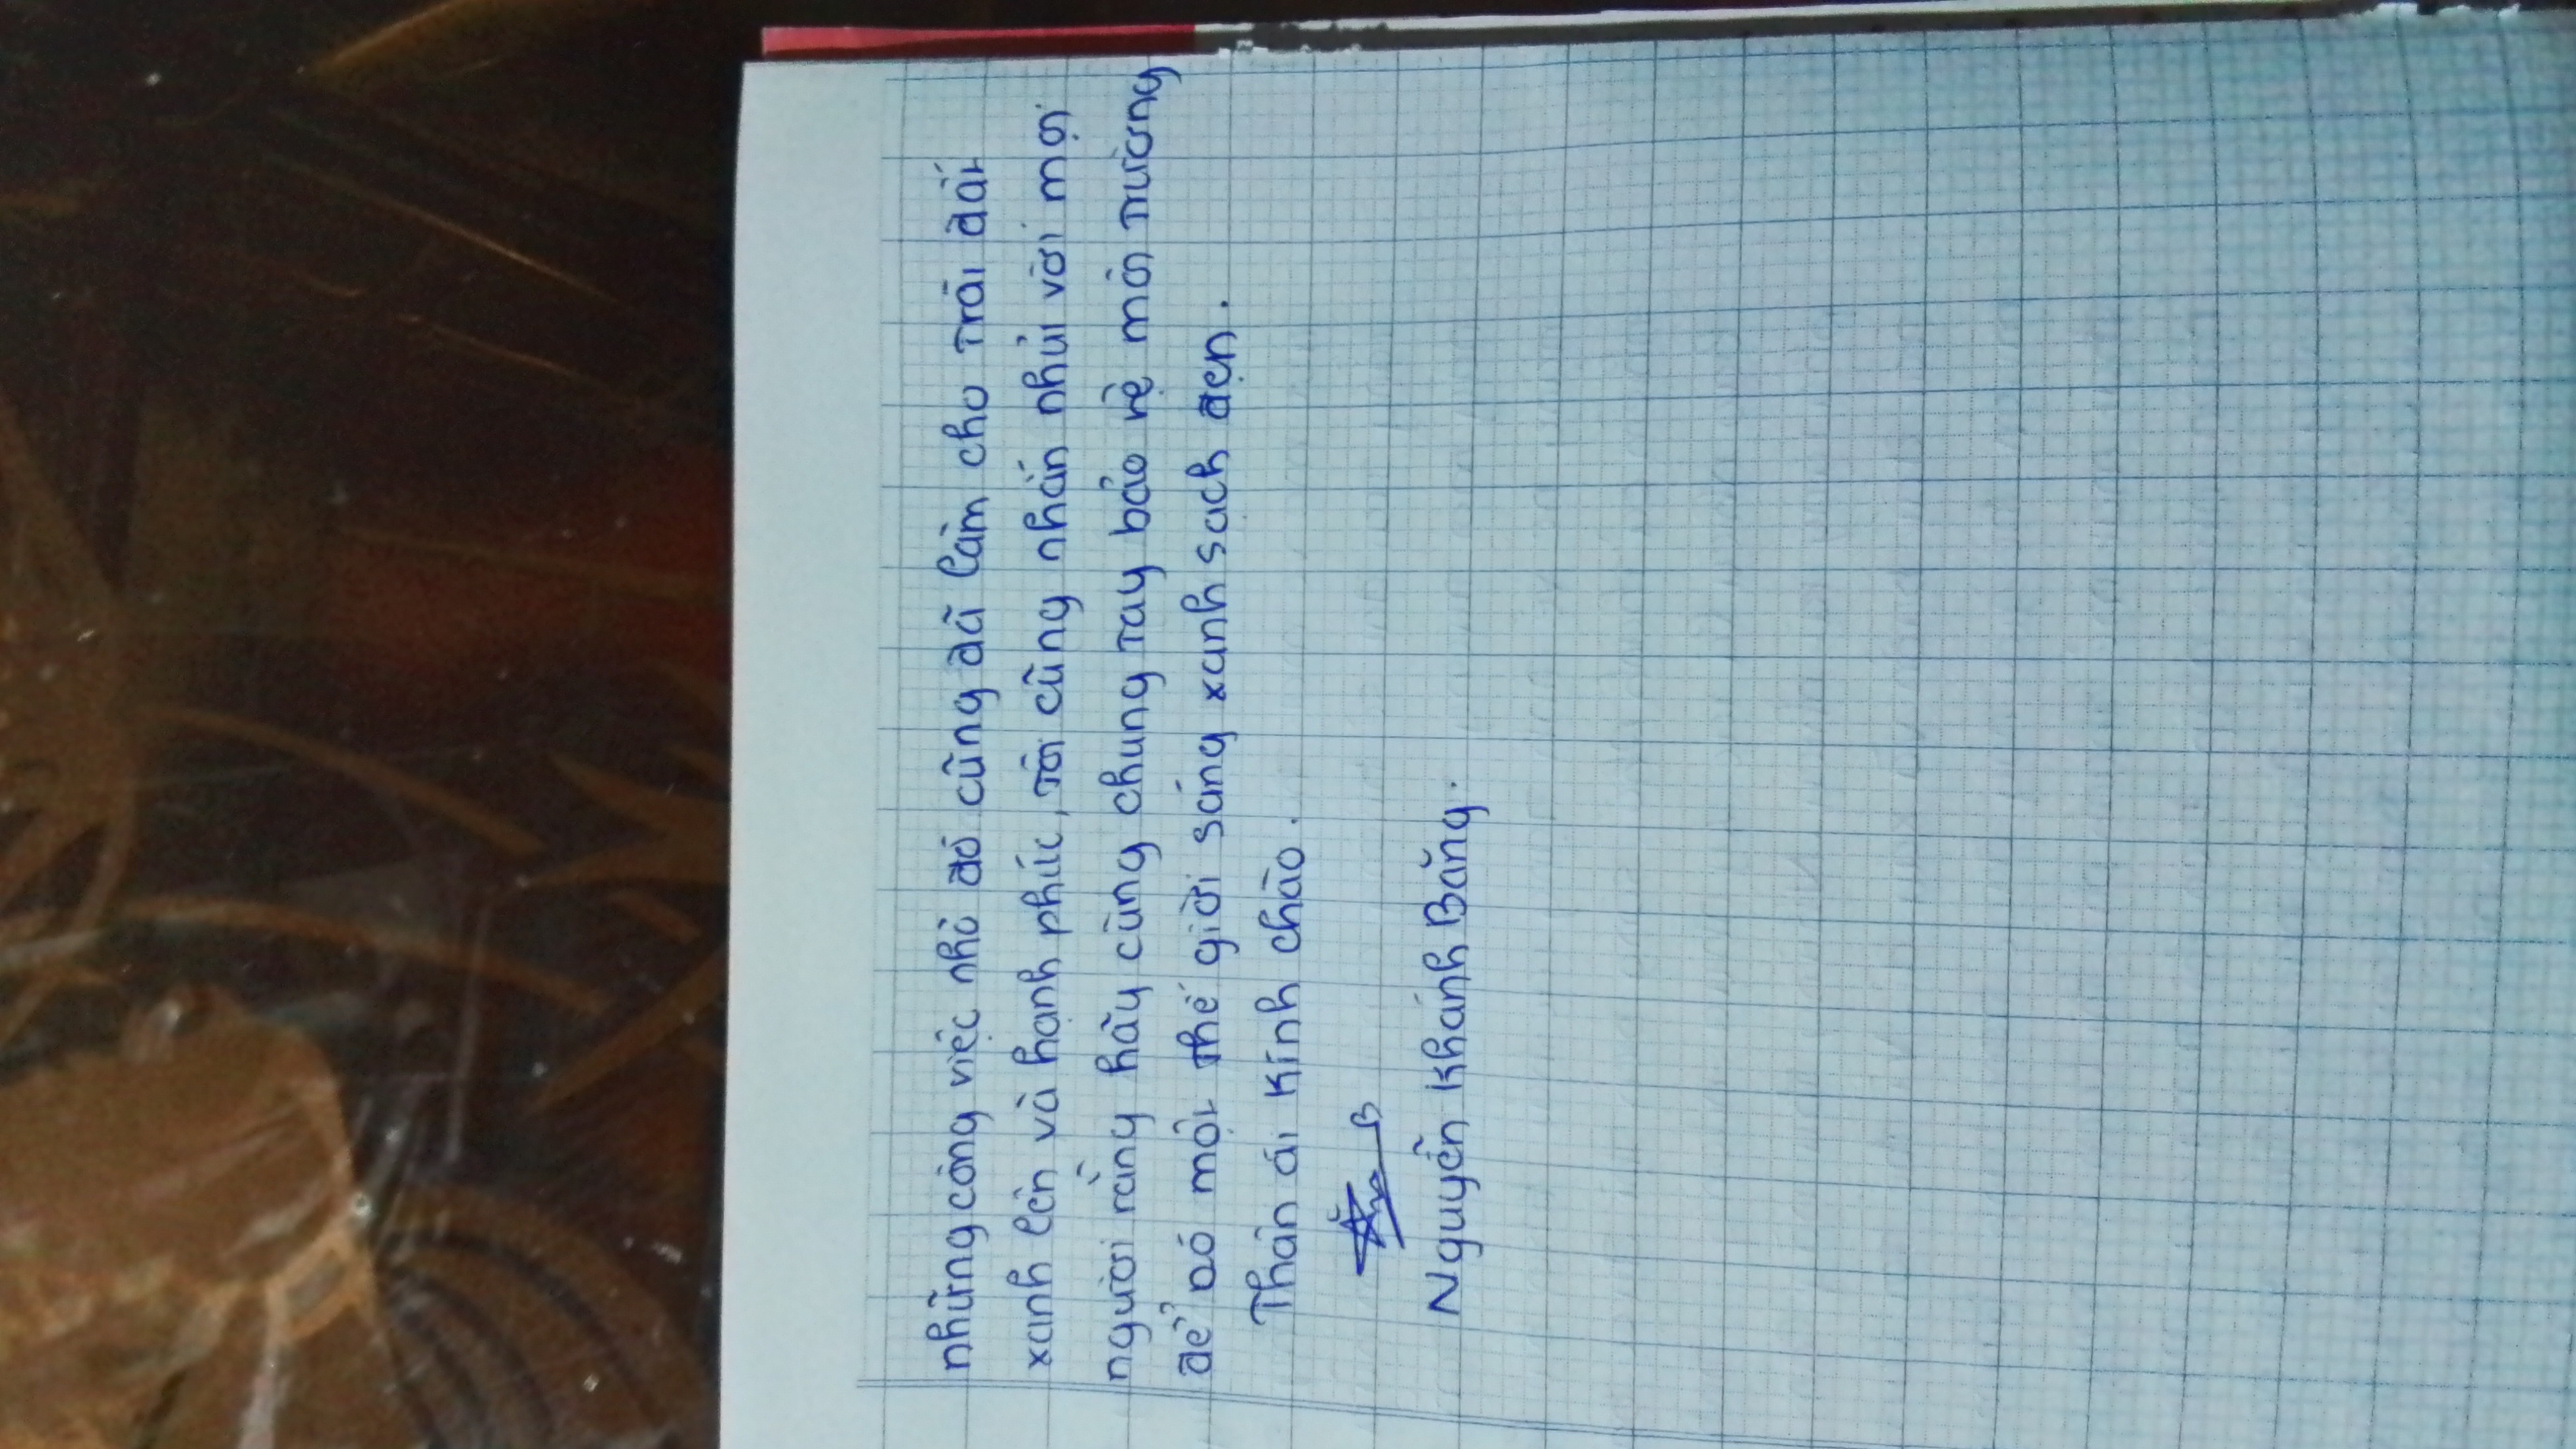 những công việc nhỏ đó cũng đã làm cho trái đất
xanh lên và hạnh phúc, tôi cũng nhắn nhủi với mọi
người rằng hãy cùng chung tay bảo vệ môi trường
để có một thế giới sáng xanh sạch đẹp.
Thân ái kính chào.
Nguyễn Khánh Băng.